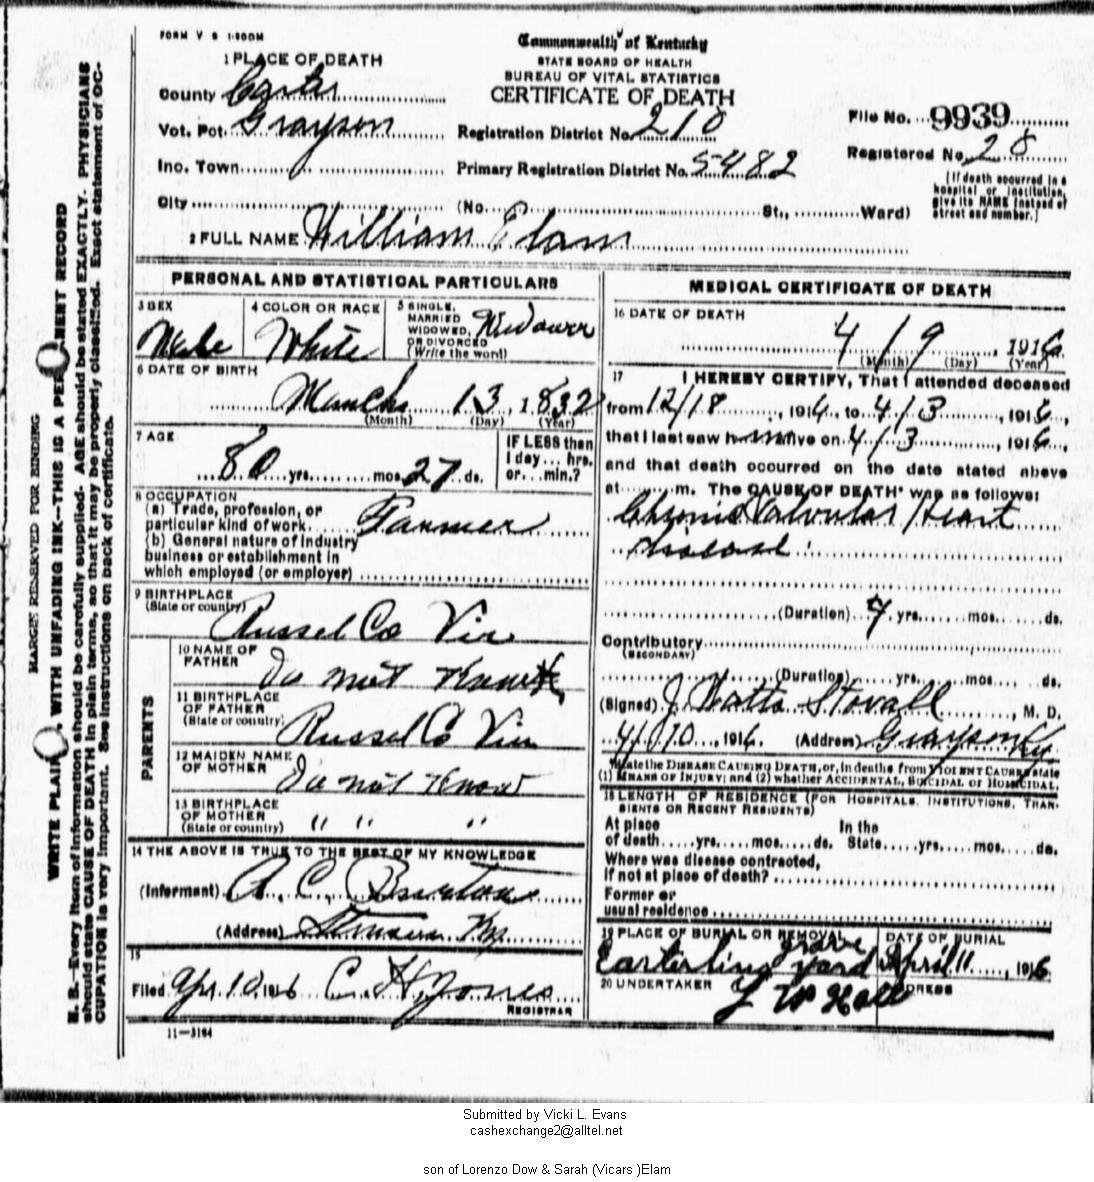 FORM V S 1-500M
Commonwealth of Kentucky
STATE BOARD OF HEALTH
BUREAU OF VITAL STATISTICS
CERTIFICATE OF DEATH
1 PLACE OF DEATH
County Carter
Vot. Pct. Grayson
Inc. Town
City
Registration District No. 210
Primary Registration District No. 5482
(No. St., Ward)
File No. 9939
Registered No. 28
[If death occurred in a
hospital or institution,
give its NAME instead of
street and number.]
2 FULL NAME William Elam
PERSONAL AND STATISTICAL PARTICULARS
3 SEX
Male
4 COLOR OR RACE
White
5 SINGLE,
MARRIED
WIDOWED,
OR DIVORCED
(Write the word)
Widower
6 DATE OF BIRTH
March 13, 1832
(Month) (Day) (Year)
7 AGE
80 yrs. mos. 27 ds.
IF LESS than
1 day... hrs.
or... min.?
8 OCCUPATION
(a) Trade, profession, or
particular kind of work Farmer
(b) General nature of Industry
business or establishment in
which employed (or employer)
9 BIRTHPLACE
(State or country)
Russel Co Vir
PARENTS
10 NAME OF
FATHER
Do not Know
11 BIRTHPLACE
OF FATHER
(State or country)
Russel Co Vir
12 MAIDEN NAME
OF MOTHER
Do not Know
13 BIRTHPLACE
OF MOTHER
(State or country) " " "
14 THE ABOVE IS TRUE TO THE BEST OF MY KNOWLEDGE
(Informant) A. C. Burton
(Address) Ky
15
Filed Apr. 10, 1916 C. H. Jones
REGISTRAR
11—3184
MEDICAL CERTIFICATE OF DEATH
16 DATE OF DEATH
4 / 9, 1916
(Month) (Day) (Year)
17 I HEREBY CERTIFY, That I attended deceased
from 12/18, 1914, to 4/3, 1916,
that I last saw him alive on 4/3, 1916,
and that death occurred on the date stated above
at m. The CAUSE OF DEATH* was as follows:
Chronic Valvular Heart
disease.
(Duration) yrs. mos. ds.
Contributory
(SECONDARY)
(Duration) yrs. mos. ds.
(Signed) J Watts Stovall, M. D.
4/10, 1916. (Address) Grayson Ky
*State the DISEASE CAUSING DEATH, or, in deaths from VIOLENT CAUSES state
(1) MEANS OF INJURY; and (2) whether ACCIDENTAL, SUICIDAL or HOMICIDAL.
18 LENGTH OF RESIDENCE (FOR HOSPITALS, INSTITUTIONS, TRANSIENTS OR RECENT RESIDENTS)
At place In the
of death yrs. mos. ds. State yrs. mos. ds.
Where was disease contracted,
if not at place of death?
Former or
usual residence
19 PLACE OF BURIAL OR REMOVAL
Easterling grave yard
DATE OF BURIAL
April 11, 1916
20 UNDERTAKER
L W Hall
ADDRESS
MARGIN RESERVED FOR BINDING
WRITE PLAINLY, WITH UNFADING INK—THIS IS A PERMANENT RECORD
N. B.—Every item of information should be carefully supplied. AGE should be stated EXACTLY. PHYSICIANS
should state CAUSE OF DEATH in plain terms, so that it may be properly classified. Exact statement of OC-
CUPATION is very important. See instructions on back of certificate.
Submitted by Vicki L. Evans
cashexchange2@alltel.net
son of Lorenzo Dow & Sarah (Vicars )Elam